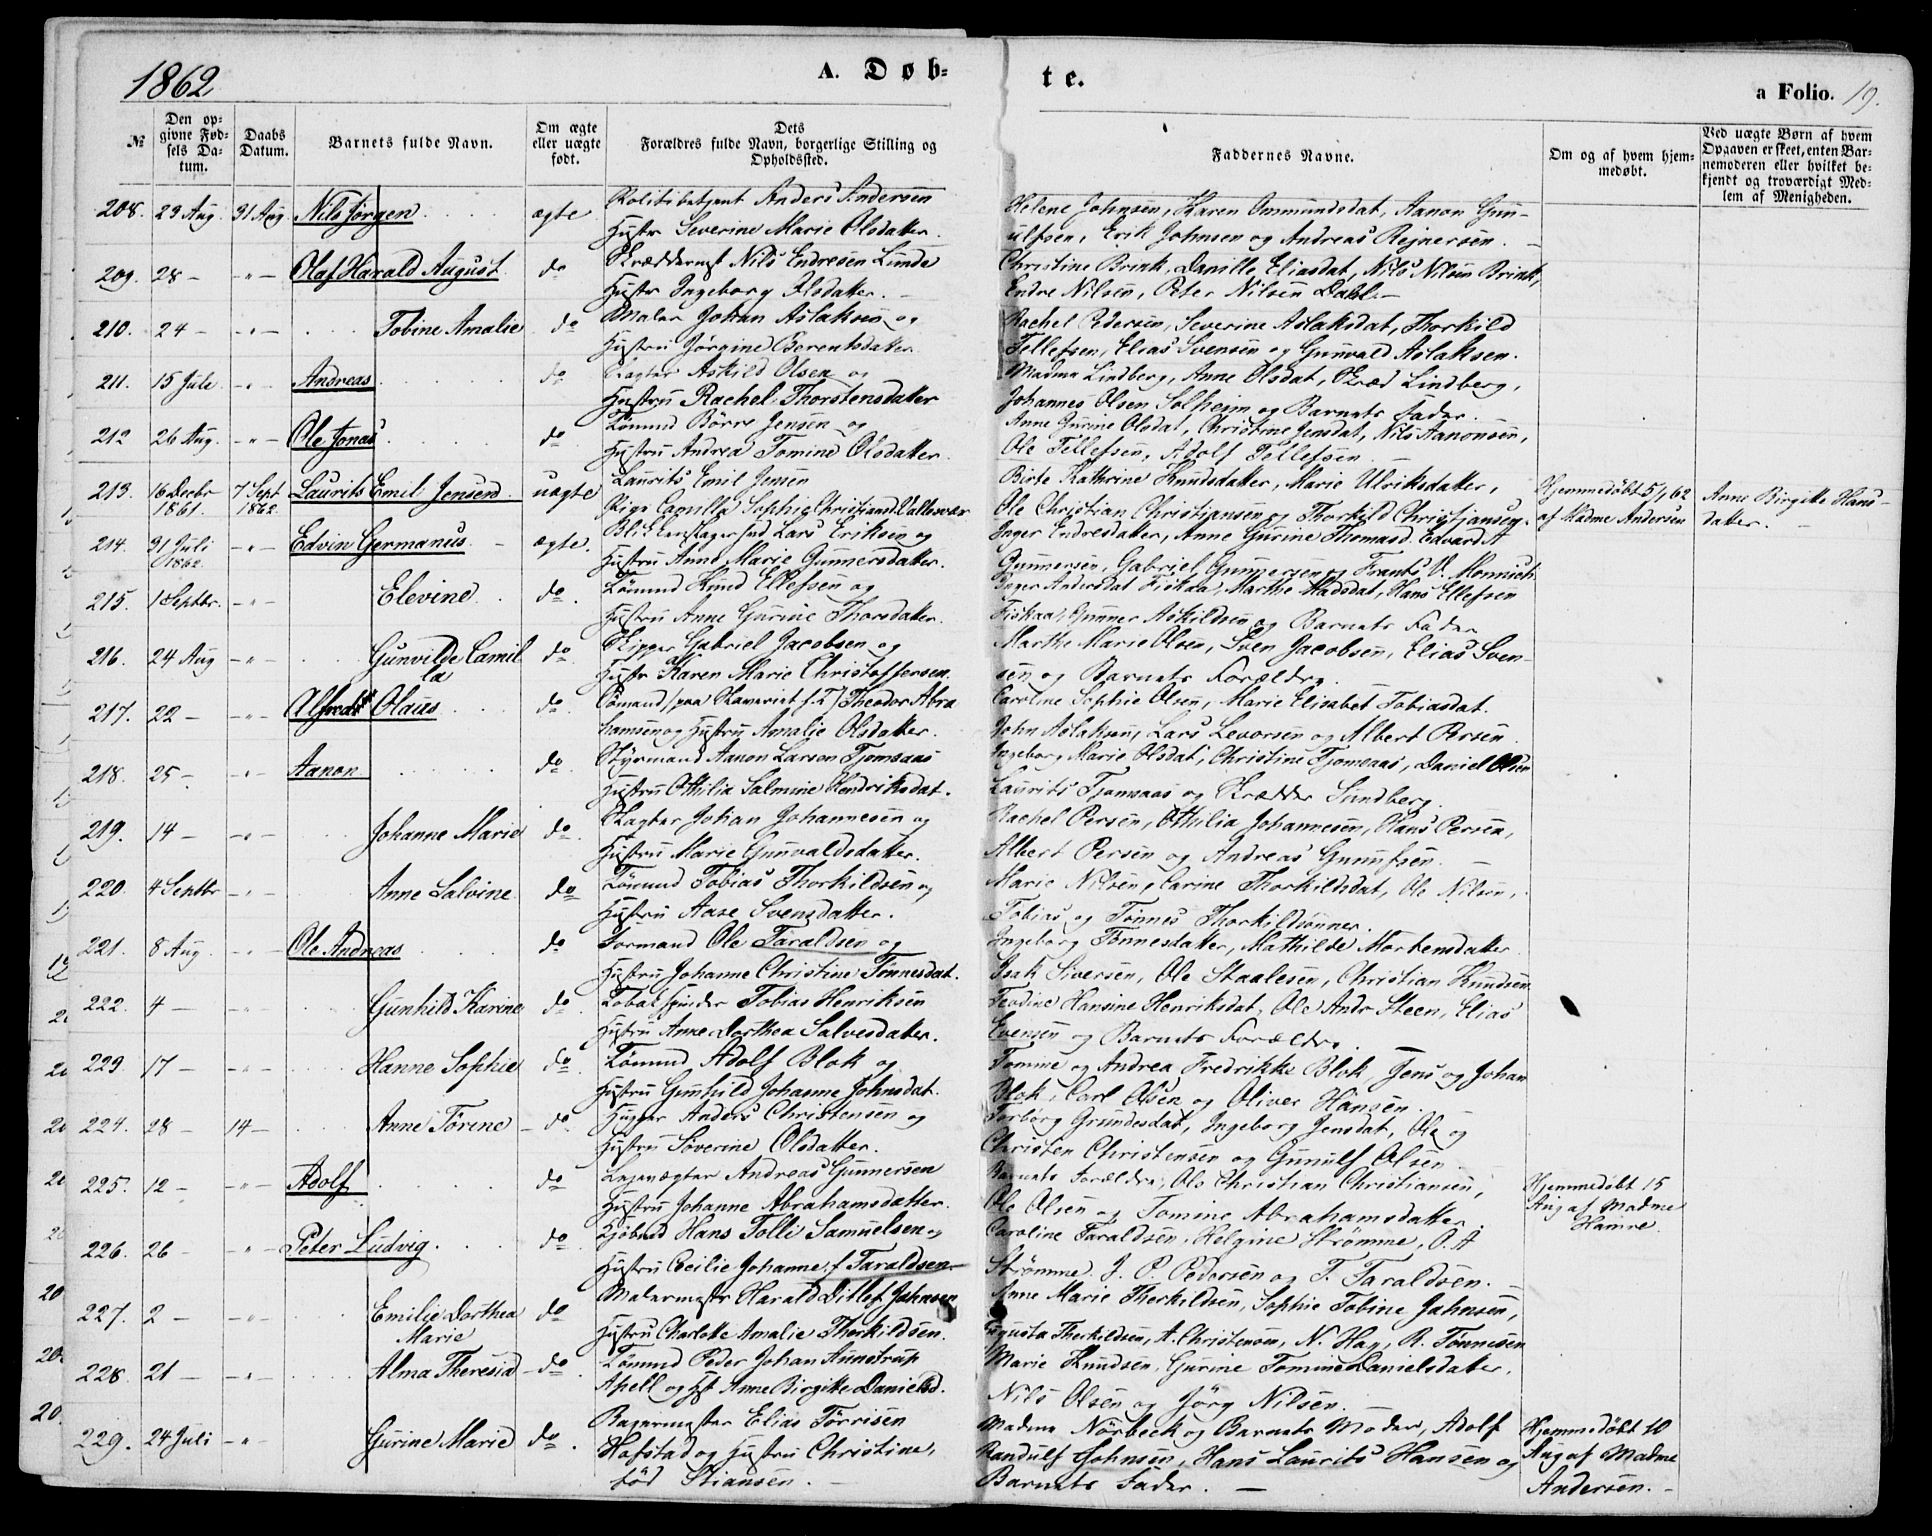 1862
A. Døb-
te.
a Folio. 19.
№
Den op-
givne Fød-
sels Da-
tum.
Daabs
Datum.
Barnets fulde Navn.
Om ægte
eller uægte
født.
Dets
Forældres fulde Navn, borgerlige Stilling og
Opholdssted.
Faddernes Navne.
Om og af hvem hjem-
medøbt.
Ved uægte Børn af hvem
Opgaven er skeet, enten Bar-
nemoderen eller hvilket be-
kjendt og troværdigt Med-
lem af Menigheden.
208. 23 Aug. 31 Aug Nils Jørgen ægte Politibetjent Anders Andersen
Hustr Severine Marie Olsdatter.
Helene Johnsen, Karen Ommundsdat, Aanon Gun-
ulfsen, Erik Johnsen og Andreas Rejnersen.
209. 28 - - " - Olaf Harald August do Skræddermst Nils Endresen Lunde
Hustr Ingeborg Olsdatter.
Christine Brink, Danille Eliasdat, Nils Nilsen Brink,
Endre Nilsen, Peter Nilsen Dahl. -
210. 24 - - " - Tobine Amalie do Maler Johan Aslaksen og
Hustru Jørgine Berentsdatter
Rachel Pedersen, Severine Aslaksdat, Thorkild
Tellefsen, Elias Svensen og Gunvald Aslaksen.
211. 15 Jule - " - Andreas do Askild Olsen og
Hustru Rachel Thorstensdatter
Madme Lindberg, Anne Olsdat, Skræd Lindberg,
Johannes Olsen Solheim og Barnets Fader.
212 26 Aug. - " - Ole Jonas do Sømand Børre Jensen og
Hustru Andrea Tomine Olsdatter.
Anne Gurine Olsdat, Christine Jensdat, Nils Aanonsen,
Ole Tellefsen, Adolf Tellefsen.
213. 16 Decbr 1861. 7 Sept 1862. Laurits Emil Jensen uægte Laurits Emil Jensen
Pige Camilla Sophie Christiansd. Vallesvær
Birte Kathrine Knudsdatter, Marie Ulriksdatter,
Ole Christian Christiansen og Thorkild Christiansen.
Hjemmedøbt 5/1 62
af Madme Andersen
Anne Birgitte Hans-
datter.
214. 31 Juli 1862. - " - Edvin Germanus ægte. Blikkenslagersvd Lars Eriksen og
Hustru Anne Marie Gunnersdatter.
Inger Endresdatter, Anne Gurine Thomasd. Edvard A
Gunnersen, Gabriel Gunnersen og Frants V. Monnich
215. 1 Septbr. - " - Elevine do. Sømand Knud Ellefsen og
Hustru Anne Gurine Thorsdatter.
Inger Andersdat Fiskaa, Marthe Madsdat, Hans Ellefsen
Fiskaa, Gunner Askildsen og Barnets Fader
216. 24 Aug - " - Gunvilde Camil
la do Skipper Gabriel Jacobsen og
Hustr Karen Marie Christoffersen.
Marthe Marie Olsen, Sven Jacobsen, Elias Sven-
sen og Barnets Forældre.
217. 22 - - " - Alfred Olaus do. Sømand Theodor Abra
hamsen og Hustru Amalie Olsdatter.
Caroline Sophie Olsen, Marie Elisabet Tobiasdat.
John Aslaksen, Lars Levorsen og Albert Persen
218. 25 - - " - Aanon do. Styrmand Aanon Larsen Fjomsaas
Hustru Othilia Salmine Hendriksdat.
Ingeborg Marie Olsdat, Christine Fjomsaas, Daniel Olsen
Laurits Fjomsaas og Skrædder Sundberg.
219. 14 - - " - Johanne Marie do. Slagter Johan Johannesen og
Hustru Marie Gunvaldsdatter.
Rachel Persen, Othilia Johannesen, Hans Persen,
Albert Persen og Andreas Gunulfsen.
220. 4 Septbr - " - Anne Salvine do Sømand Tobias Thorkildsen og
Hustru Aase Svensdatter.
Marie Nilsen, Carine Thorkildsdat, Ole Nilsen,
Tobias og Tønnes Thorkildsønner.
221. 8 Aug. - " - Ole Andreas do Formand Ole Taraldsen og
Hustru Johanne Christine Tønnesdat.
Ingeborg Tønnesdatter, Mathilde Mortensdatter
Isak Siversen, Ole Staalesen, Christian Knudsen
222. 4 - - " - Gunhild Karine do. Tobakspinder Tobias Henriksen
Hustru Anne Dorthea Salvesdatter.
Teodine Hansine Henriksdat, Ole Andr Steen, Elias
Evensen og Barnets Forældre.
223. 17 - - " - Hanne Sophie do. Sømand Adolf Blok og
Hustru Gunhild Johanne Johnsdat.
Tomine og Andrea Fredrikke Blok, Jens og Johan
Blok, Carl Olsen og Oliver Hansen.
224. 28 - 14 - Anne Tørine do. Anders Christensen og
Hustru Søverine Olsdatter.
Torborg Grundesdat, Ingeborg Jensdat, Ole og
Christen Christensen og Gunulf Olsen.
225. 12 - - " - Adolf do Andreas Gunnersen
Hustru Johanne Abrahamsdatter.
Barnets Forældre, Ole Christian Christiansen,
Ole Olsen og Tomine Abrahamsdatter.
Hjemmedøbt 15
Aug af Madme
Hamre.
226. 26 - - " - Peter Ludvig. do. Kjøbmd Hans Folle Samuelsen og
Hustru Cecilie Johanne f. Taraldsen
Caroline Taraldsen, Helgine Strømme, O. A
Strømme, J. P. Pedersen og T. Taraldsen.
227. 2 - - " - Emilie Dorthea
Marie do Malermestr Harald Ditlef Johnsen
Hustru Charlotte Amalie Therkildsen.
Anne Marie Therkildsen, Sophie Tobine Johnsen,
Augusta Therkildsen, A. Christensen, N. Hay, R. Tønnesen
228. 21 - - " - Alma Theresia do. Sømand Peder Johan Annstrup
Apell og Hst Anne Birgitte Danielsd.
Marie Knudsen, Gurine Tomine Danielsdatter,
Nils Olsen og Jørg Nilsen.
229. 24 Juli - " - Gurine Marie do. Bagermester Elias Tørrisen
Hofstad og Hustru Christine,
født Stiansen.
Madme Nørbeck og Barnets Moder, Adolf
Randulf Johnsen, Hans Laurits Hansen og
Barnets Fader. -
Hjemmedøbt 10
Aug af Madme
Andersen. -